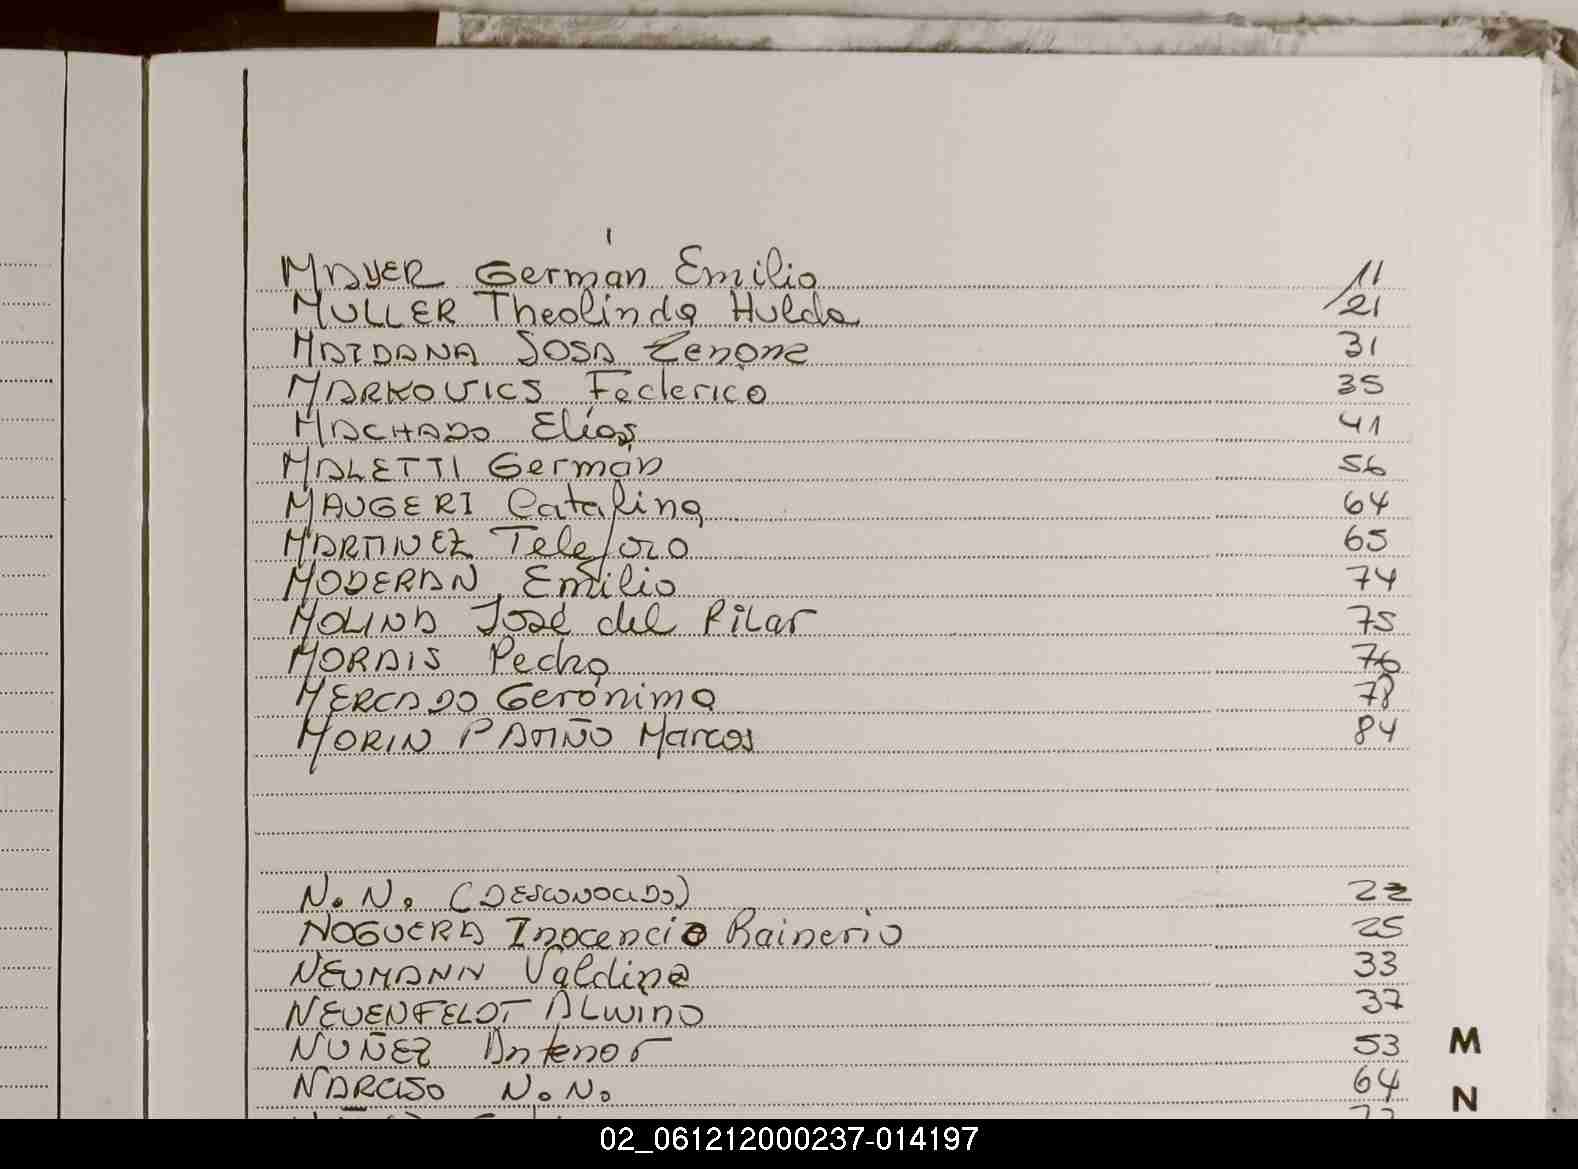 MAYER Germán Emilio 11
MULLER Theolinda Hulda 21
MAIDANA SOSA Zenona 31
MARKOVICS Federico 35
MACHADO Elías 41
MALETTI Germán 56
MAUGERI Catalina 64
MARTINEZ Telesforo 65
MODERAN, Emilio 74
MOLINA José del Pilar 75
MORAIS Pedro 76
MERCADO Gerónimo 78
MORIN PATIÑO Marcos 84
N. N. (DESCONOCIDO) 22
NOGUERA Inocencio Rainerio 25
NEUMANN Valdina 33
NEUENFELDT ALwino 37
NUÑEZ Antenor 53
NARCISO N. N. 64
M
N
02_061212000237-014197